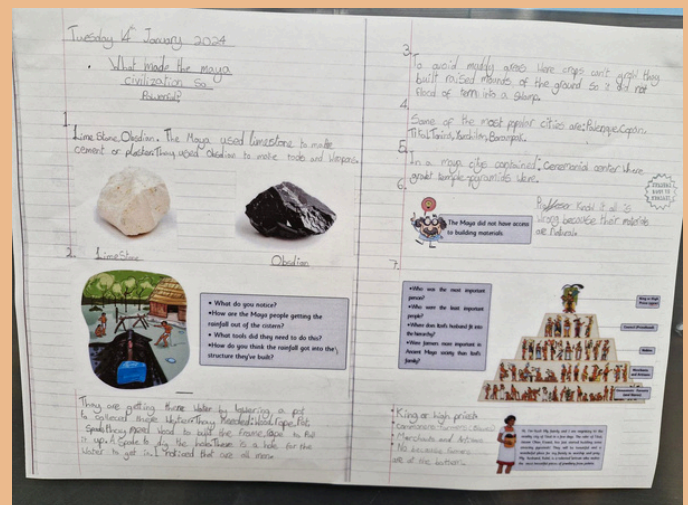 Tuesday 4th January 2024
What made the maya
civilization so
Powerful?
1.
Lime Stone, Obsdian. The Maya used limestone to make
cement or plaster. They used Obsdian to make tools and Weapons.
Lime Stone
Obsdian
2.
• What do you notice?
• How are the Maya people getting the
rainfall out of the cistern?
• What tools did they need to do this?
• How do you think the rainfall got into the
structure they've built?
They are getting there Water by lowering a pot
to collect more Water. They Needed: Wood, rope, Pot,
Spade. They need Wood to built the frame, rope to Pull
it up. A Spade to dig the hole. There is a hole for the
Water to get in. I noticed that are all men.
3.
To avoid muddy areas Where crops can't grow they
built raised mounds of the ground so it did not
flood or turn into a swamp.
4.
Some of the most popular cities are: Palenque, Copan,
Tikal, Yaxchilan, Bonampak.
5.
In a maya city contained: Ceremonial center Where
great temple-pyramids Were.
6.
The Maya did not have access
to building materials
it all is
Wrong because their materials
are Natural.
7.
• Who was the most important
person?
• Who were the least important
people?
• Where does Itzel's husband fit into
the hierarchy?
• Were farmers more important in
Ancient Maya society than Itzel's
family?
• King or high priest
• Commoners: Farmers (slaves)
• Merchants and Artisans
• No because farmers
are at the bottom.